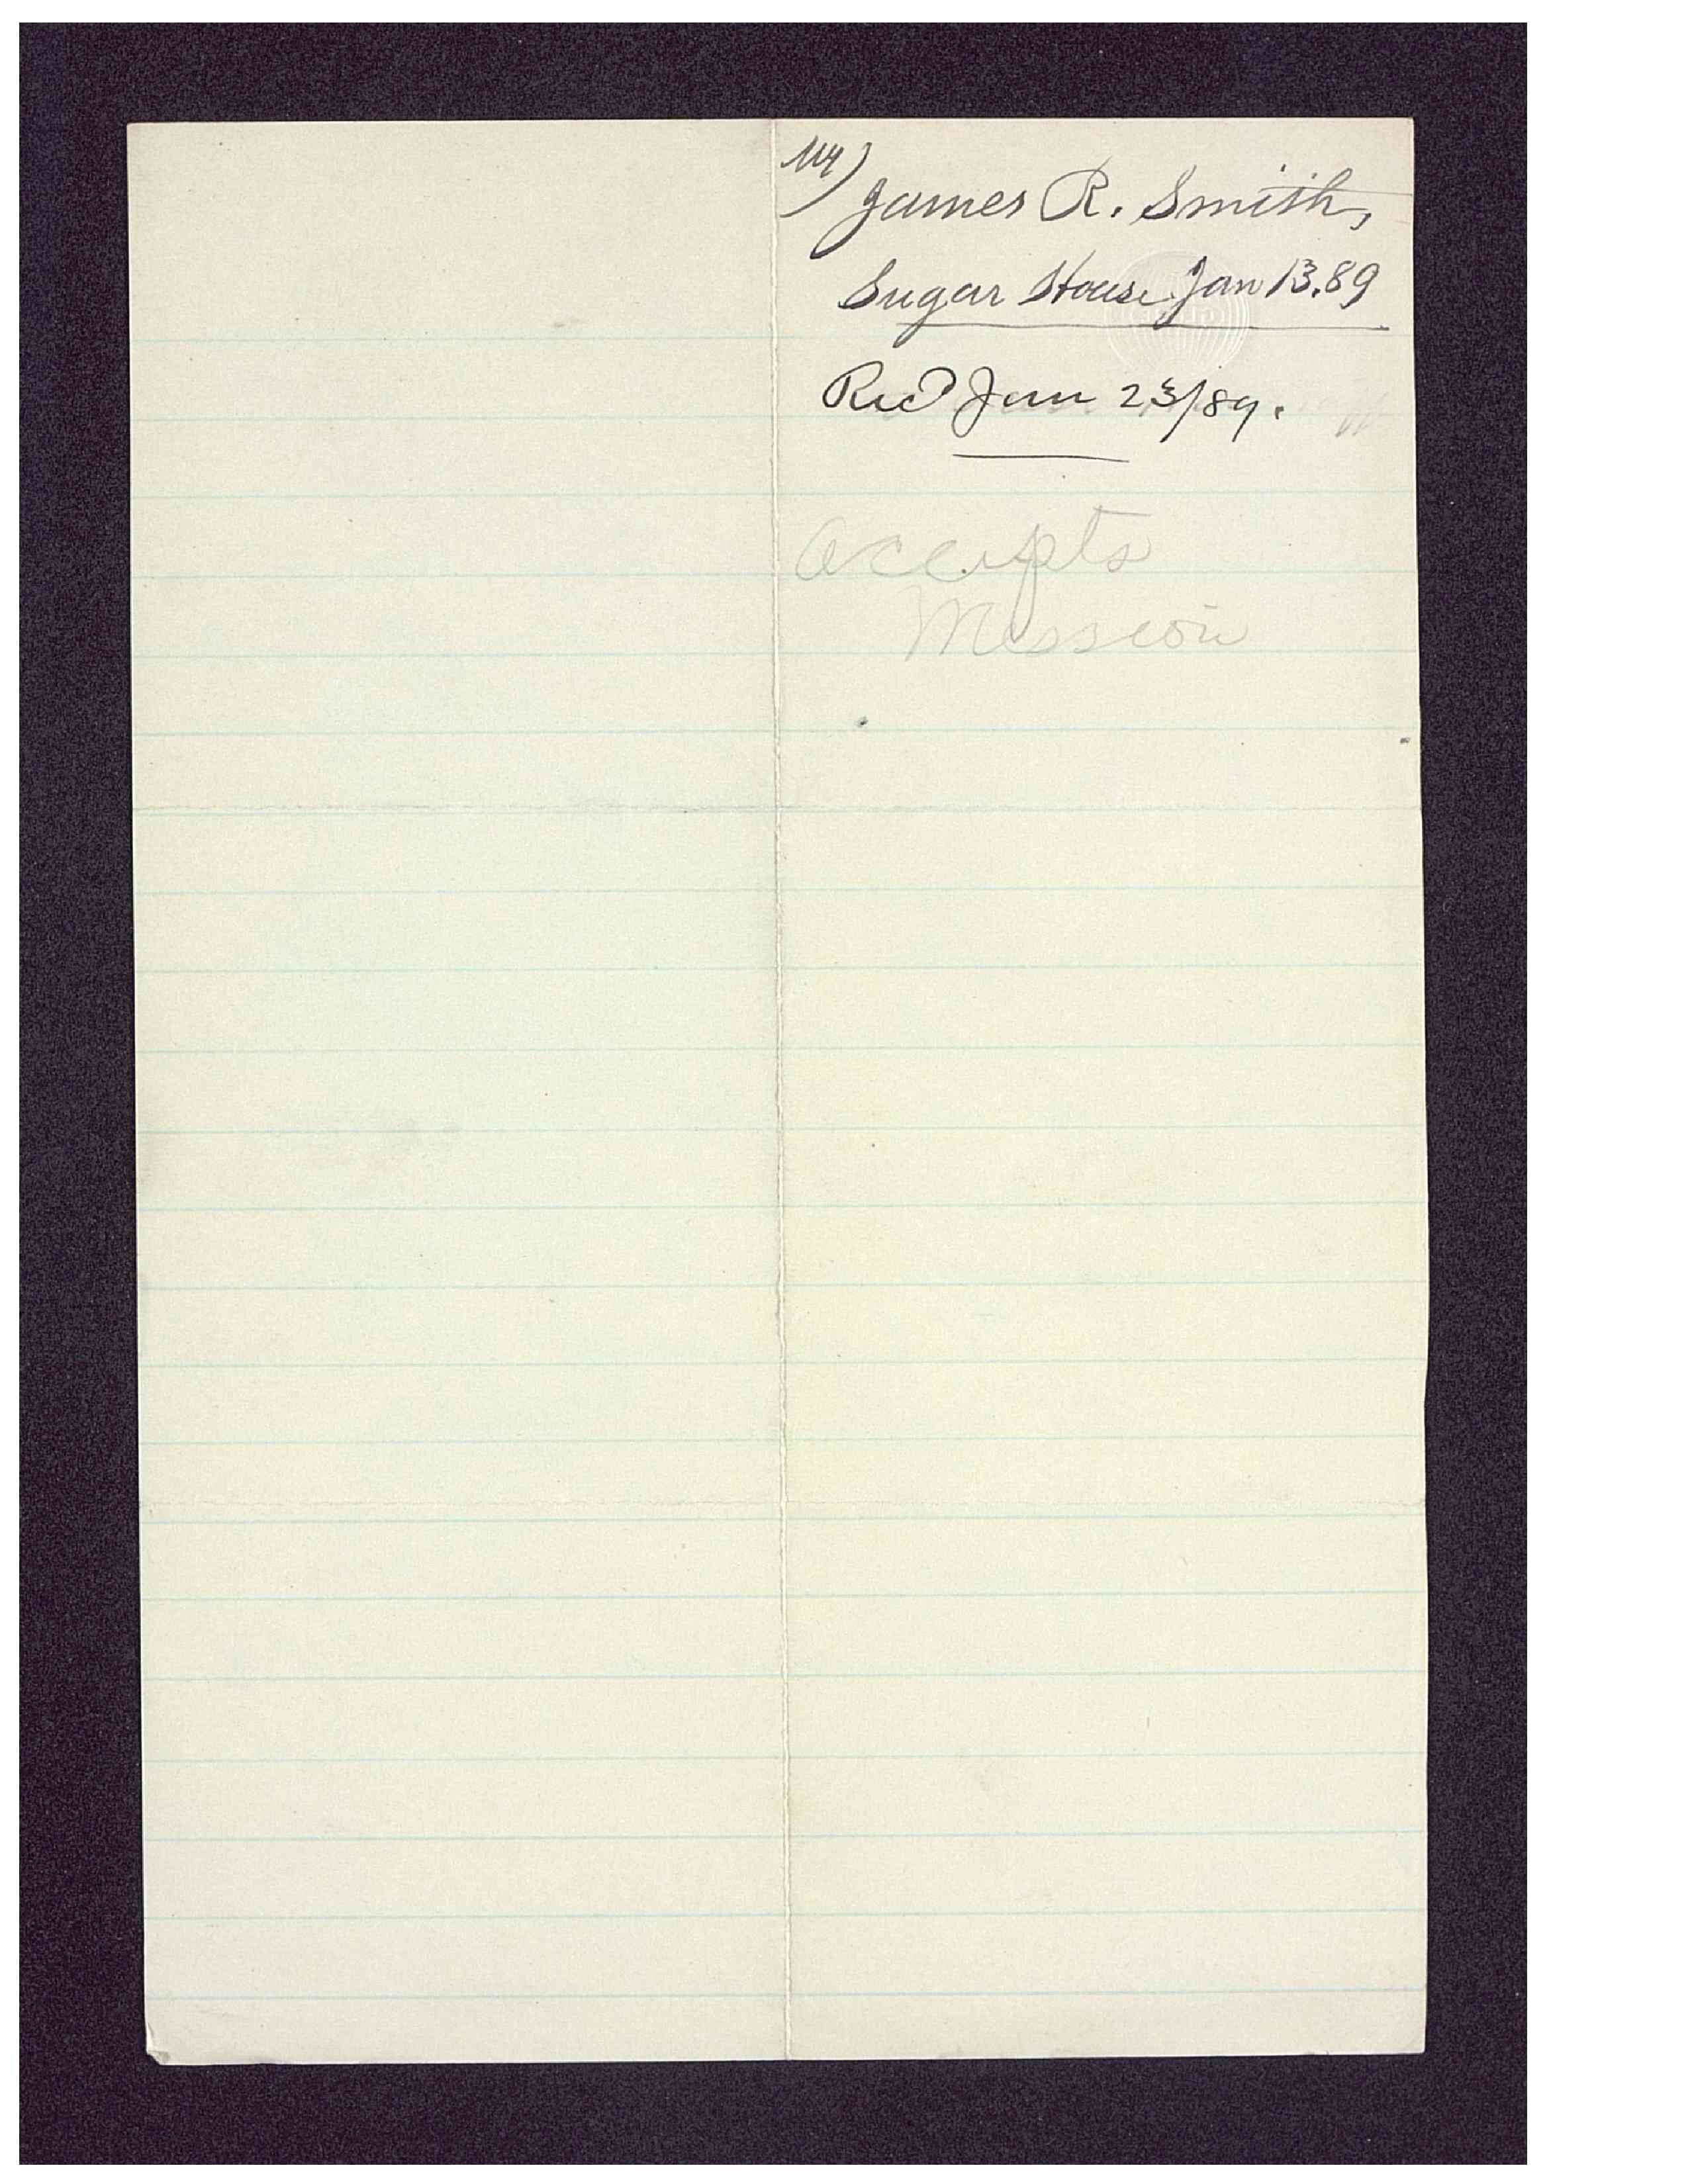 James R. Smith,
Sugar House Jan 13.89
Recd Jan 23/89.
Accepts
Mission